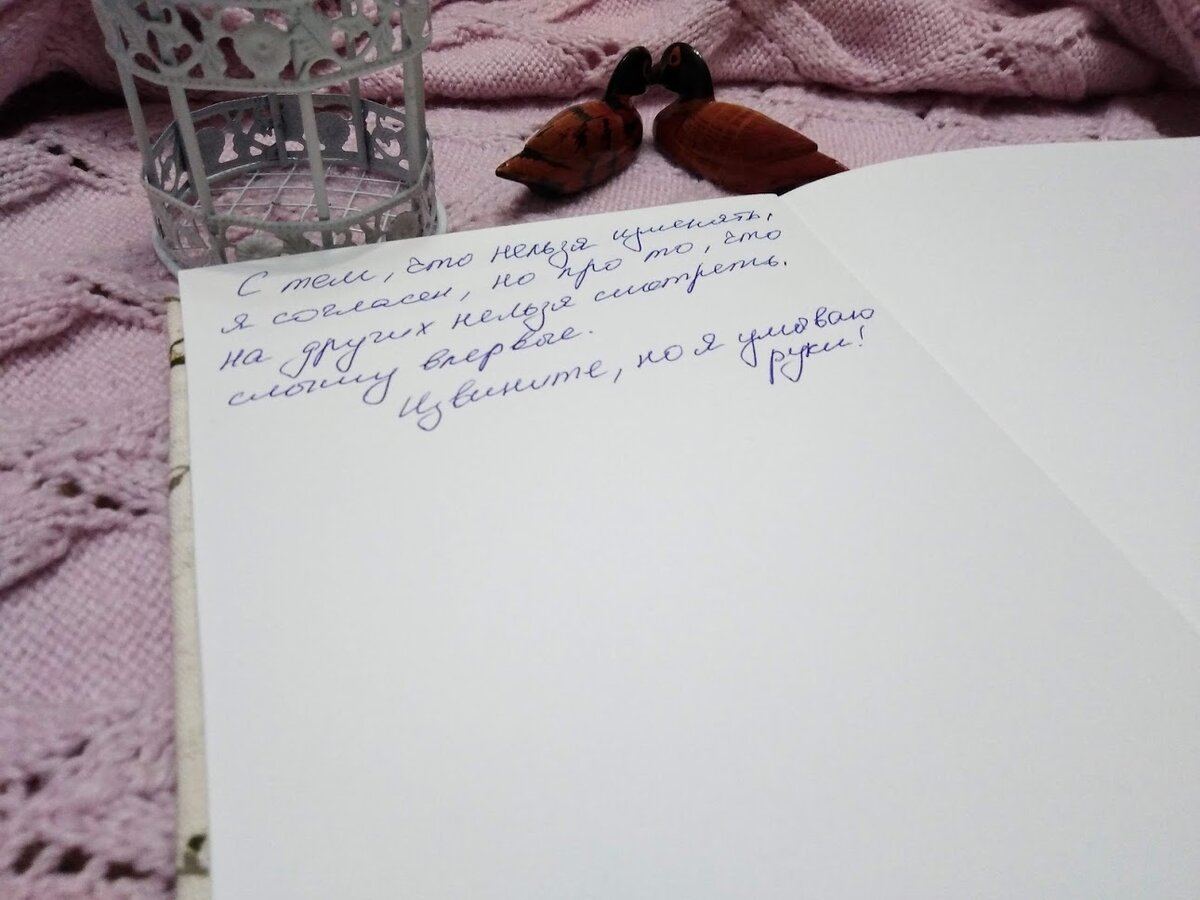 С тем, что нельзя изменять,
я согласен, но про то, что
на других нельзя смотреть.
слышу впервые.
Извините, но я умываю
руки!